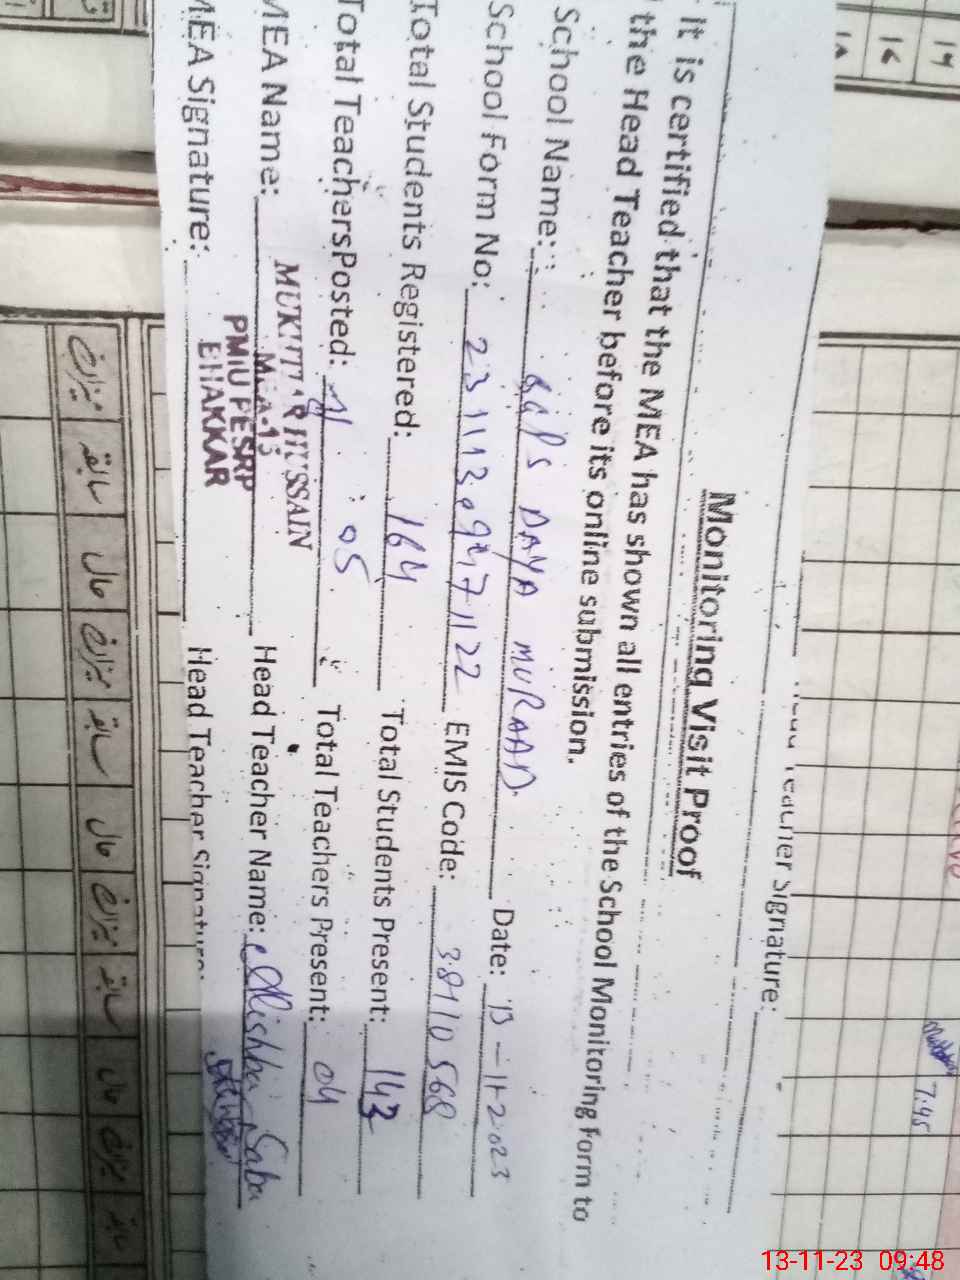 Teacher Signature:
Monitoring Visit Proof
it is certified that the MEA has shown all entries of the School Monitoring Form to
the Head Teacher before its online submission.
School Name: GGPS DAYA MURAAD. Date: 13-11-2023
School Form No: EMIS Code: 38110568
Total Students Registered: 164 Total Students Present: 143
Total TeachersPosted: 05 Total Teachers Present: 04
MEA Name: MUKHTAR HUSSAIN Head Teacher Name: Saba
MEA-13
PMIU PESRP
BHAKKAR
MEA Signature: Head Teacher Signature:
میزان سابقہ حال میزان سابقہ حال میزان سابقہ حال میزان سابقہ
14
16
7:45
13-11-23 09:48